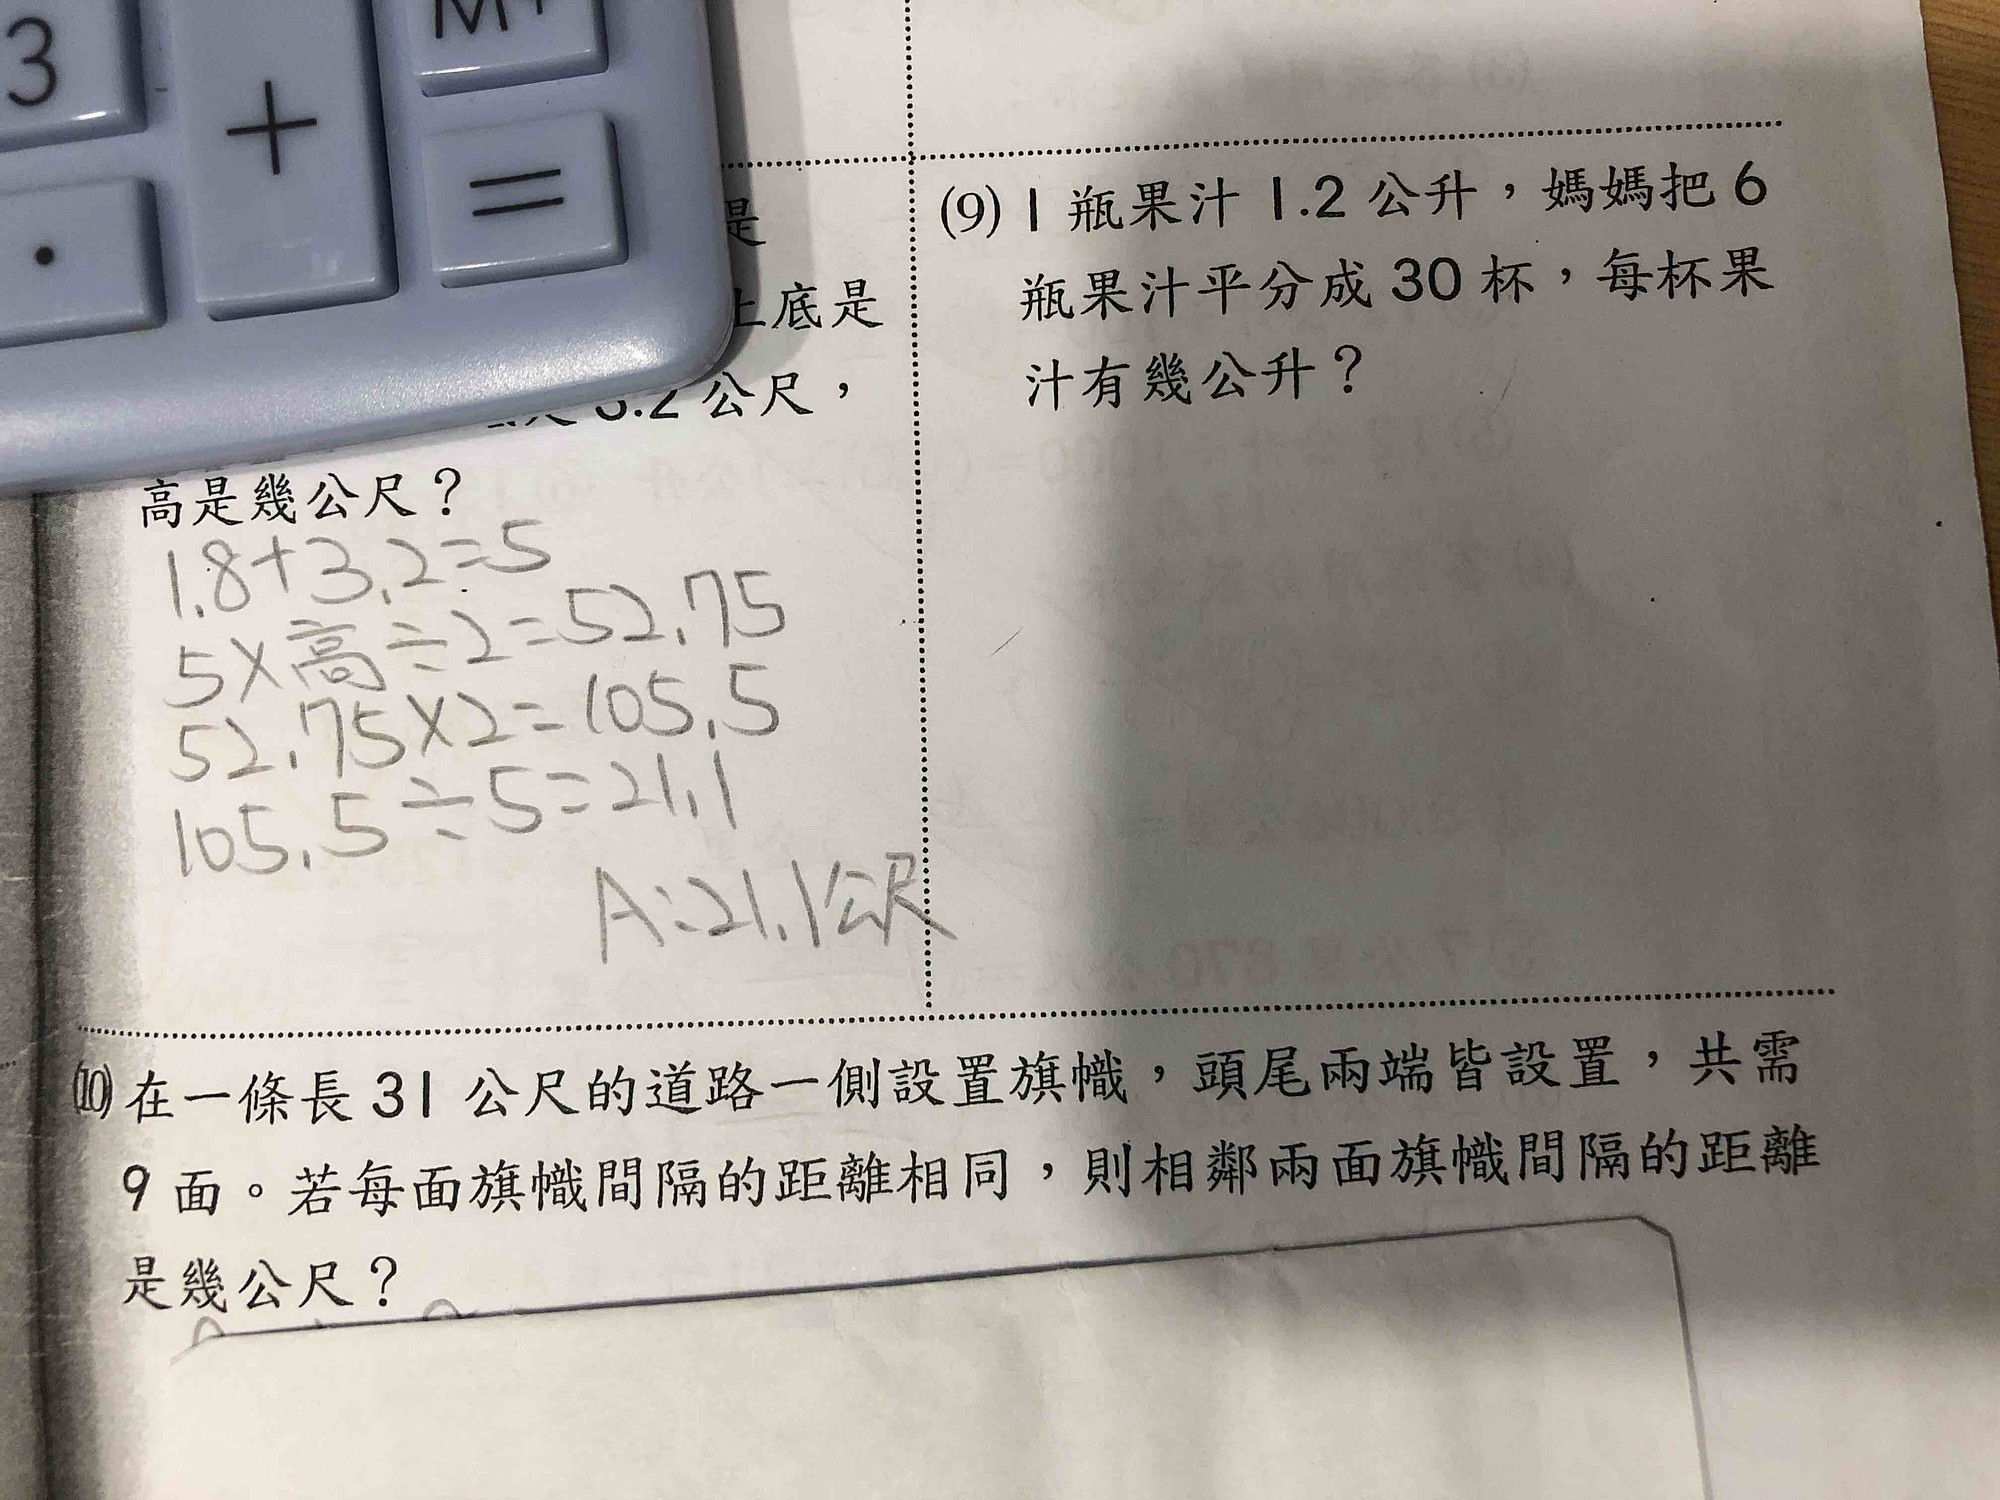 3
+
M+
=
.
是
上底是
3.2 公尺，
高是幾公尺？
1.8+3.2=5
5×高÷2=52.75
52.75×2=105.5
105.5÷5=21.1
A:21.1公尺
(9) 1 瓶果汁 1.2 公升，媽媽把 6
瓶果汁平分成 30 杯，每杯果
汁有幾公升？
(10) 在一條長 31 公尺的道路一側設置旗幟，頭尾兩端皆設置，共需
9 面。若每面旗幟間隔的距離相同，則相鄰兩面旗幟間隔的距離
是幾公尺？